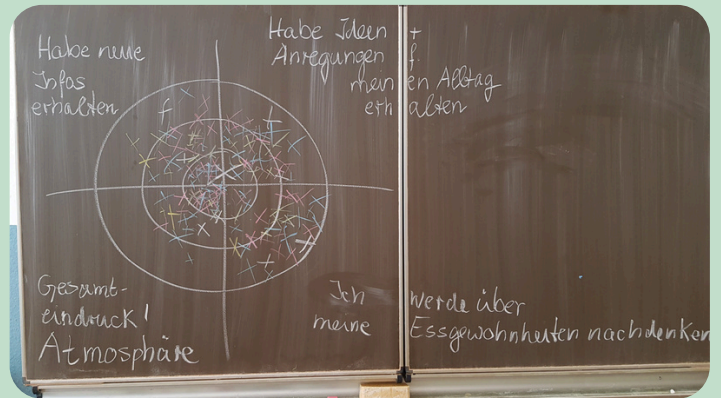 Habe neue
Infos
erhalten
Habe Ideen +
Anregungen f.
meinen Alltag
erhalten
f
Gesamt-
eindruck /
Atmosphäre
Ich werde über
meine Essgewohnheiten nachdenken